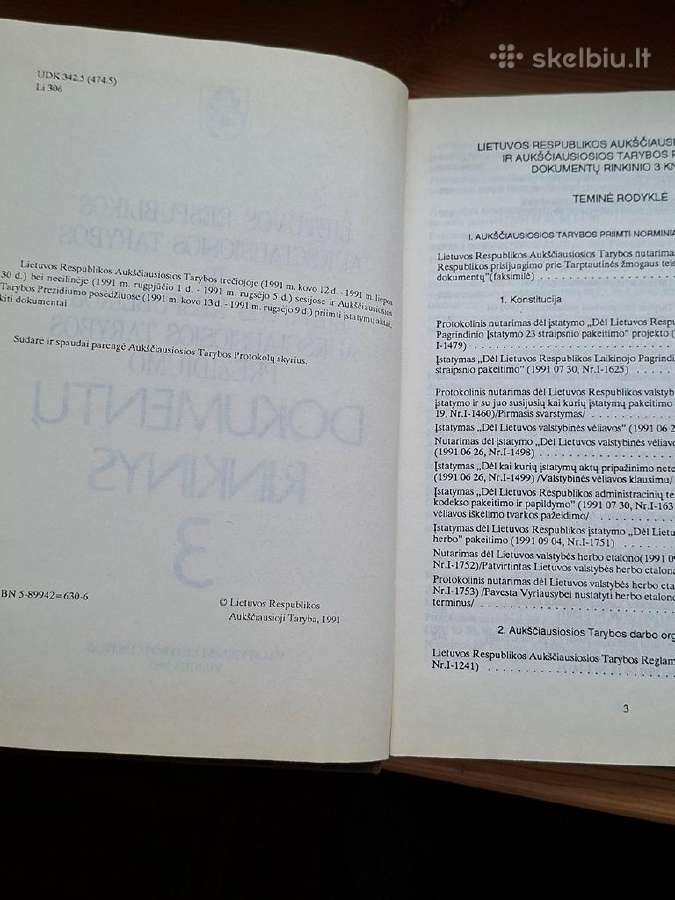 skelbiu.lt
UDK 342.5 (474.5)
Li 306
Lietuvos Respublikos Aukščiausiosios Tarybos trečiojoje (1991 m. kovo 12 d. - 1991 m. liepos
30 d.) bei neeilinėje (1991 m. rugpjūčio 1 d. - 1991 m. rugsėjo 5 d.) sesijose ir Aukščiausiosios
Tarybos Prezidiumo posėdžiuose (1991 m. kovo 13 d. - 1991 m. rugsėjo 9 d.) priimti įstatymų aktai,
kiti dokumentai
Sudarė ir spaudai parengė Aukščiausiosios Tarybos Protokolų skyrius.
BN 5-89942-630-6
© Lietuvos Respublikos
Aukščiausioji Taryba, 1991
LIETUVOS RESPUBLIKOS AUKŠČIAUSI
IR AUKŠČIAUSIOSIOS TARYBOS P
DOKUMENTŲ RINKINIO 3 KN
TEMINĖ RODYKLĖ
I. AUKŠČIAUSIOSIOS TARYBOS PRIIMTI NORMINIA
Lietuvos Respublikos Aukščiausiosios Tarybos nutarima
Respublikos prisijungimo prie Tarptautinės žmogaus teis
dokumentų" (faksimilė)
1. Konstitucija
Protokolinis nutarimas dėl įstatymo „Dėl Lietuvos Respu
Pagrindinio Įstatymo 23 straipsnio pakeitimo" projekto (
I-1479)
Įstatymas „Dėl Lietuvos Respublikos Laikinojo Pagrindin
straipsnio pakeitimo" (1991 07 30, Nr.I-1625)
Protokolinis nutarimas dėl Lietuvos Respublikos valstyb
įstatymo ir su juo susijusių kai kurių įstatymų pakeitimo
19, Nr.I-1460)/Pirmasis svarstymas/
Įstatymas „Dėl Lietuvos valstybinės vėliavos" (1991 06 2
Nutarimas dėl įstatymo „Dėl Lietuvos valstybinės vėliavo
(1991 06 26, Nr.I-1498)
Įstatymas „Dėl kai kurių įstatymų aktų pripažinimo nete
(1991 06 26, Nr.I-1499) /Valstybinės vėliavos klausimu/
Įstatymas „Dėl Lietuvos Respublikos administracinių te
kodekso pakeitimo ir papildymo" (1991 07 30, Nr.I-163
vėliavos iškėlimo tvarkos pažeidimo/
Įstatymas dėl Lietuvos Respublikos įstatymo „Dėl Lietu
herbo" pakeitimo (1991 09 04, Nr.I-1751)
Nutarimas dėl Lietuvos valstybės herbo etalono(1991 09
Nr.I-1752)/Patvirtintas Lietuvos valstybės herbo etalona
Protokolinis nutarimas dėl Lietuvos valstybės herbo eta
Nr.I-1753) /Pavesta Vyriausybei nustatyti herbo etalono
terminus/
2. Aukščiausiosios Tarybos darbo org
Lietuvos Respublikos Aukščiausiosios Tarybos Reglam
Nr.I-1241)
3